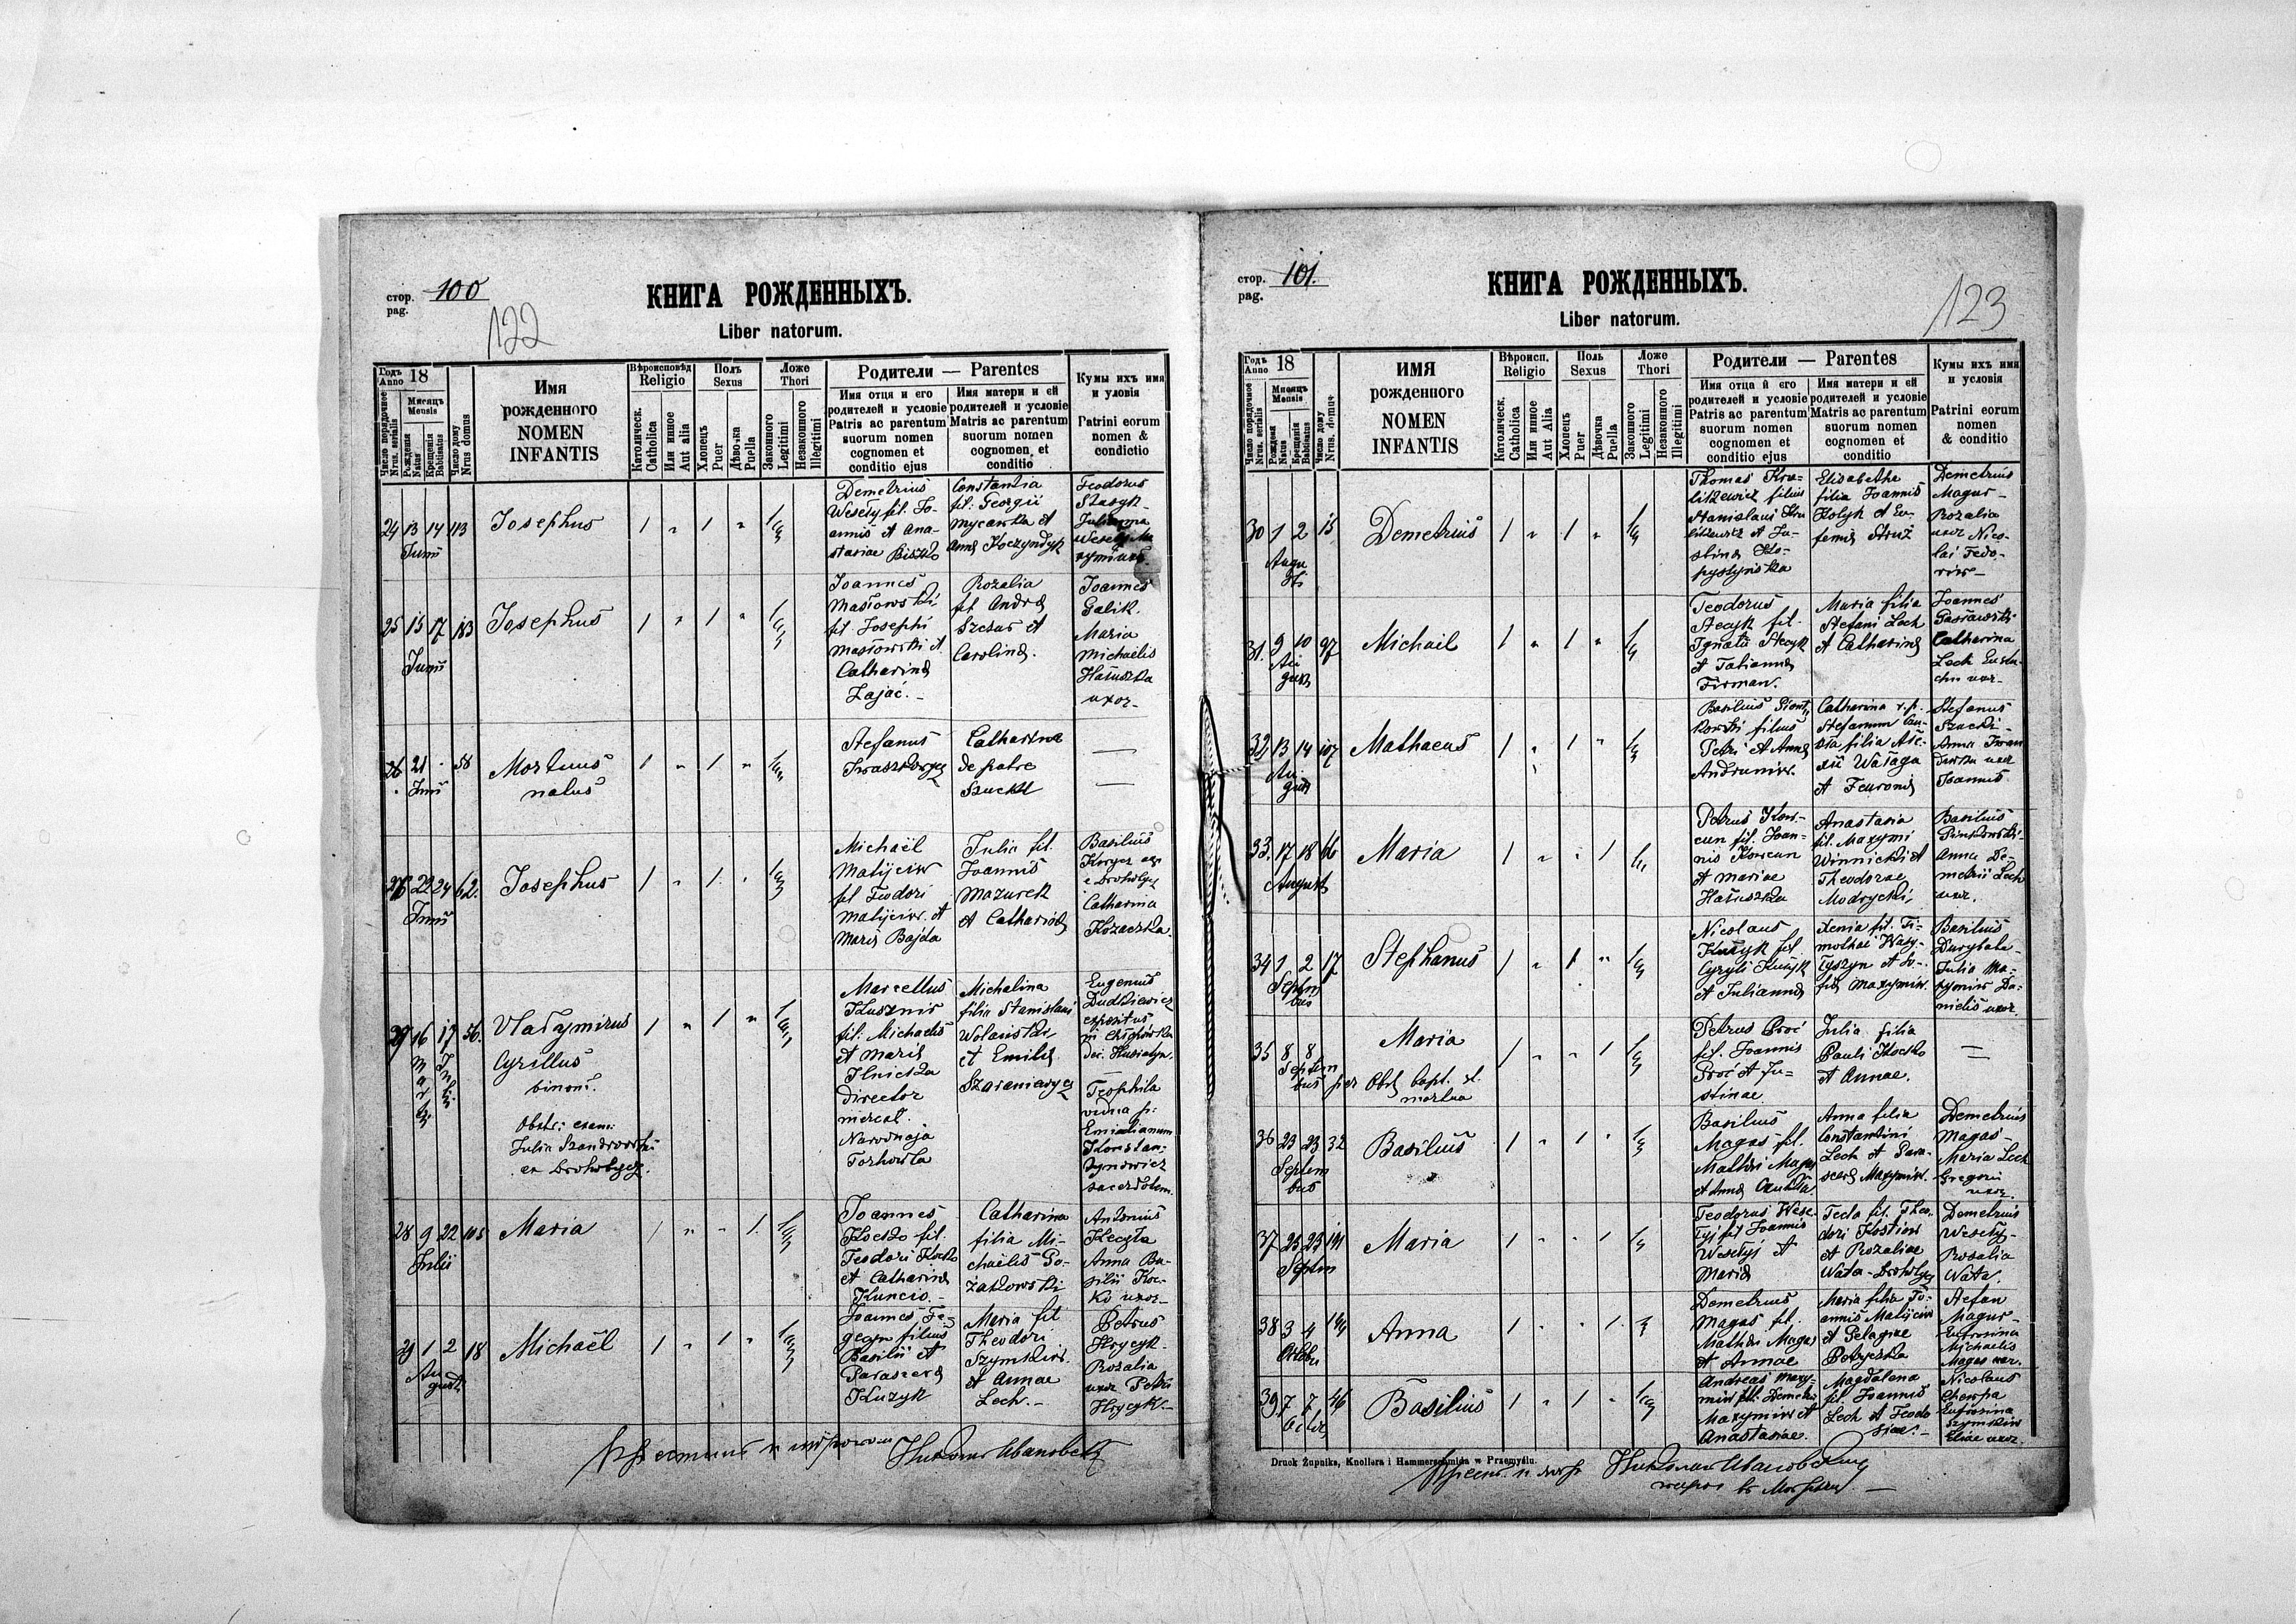 стор. 100
pag.
122
КНИГА РОЖДЕННЫХЪ.
Liber natorum.
Годъ Anno 18
Мисяцъ Mensis
Число порядочное Nrus. serialis
Рождения Natus
Крещенія Babtisatus
Число дому Nrus domus
Имя
рожденного
NOMEN
INFANTIS
Вѣроисповѣд
Religio
Католическ. Catholica
Или инное Aut alia
Полъ
Sexus
Хлопецъ Puer
Дѣвочка Puella
Ложе
Thori
Законного Legitimi
Незаконного Illegitimi
Родители — Parentes
Имя отця и его
родителей и условіе
Patris ac parentum
suorum nomen
cognomen et
conditio ejus
Имя матери и ей
родителей и условіе
Matris ac parentum
suorum nomen
cognomen, et
conditio
Кумы ихъ имя
и уловія
Patrini eorum
nomen &
condictio
24 13 14 113
Junii
Josephus
Demetrius
Weseły fil. Jo-
annis et Ana-
stasiae Biszko
Constantia
fil. Georgii
Mycawka et
Anna Koczyndyk
Teodorus
Stasyk
Julianna
25 15 17 183
Junii
Josephus
Joannes
Masłowski
fil. Josephi
Masłowski et
Catharina
Zając.-
Rozalia
fil. Andrea
Szczur et
Carolina.
Joannes
Galik.
Maria
Michaelis
Hałuszka
uxor-
26 21 58
Junii
Mortuus
natus
Stefanus
Catharina
de patre
27 22 24 62.
Junii
Josephus
Michaël
Matijciw
fil Teodori
Matijciw. et
Maria Bajda
Julia fil.
Joannis
Mazurek
et Catharina
Basilius
Korycz ex
Drohobycz
Catharina
Kozaczka.
16 17 56.
Vladymirus
Cyrillus
binom.
Obstr: exam:
Julia Szandrowska
ex Drohobycz.
Marcellus
Kusznir
fil. Michaelis
et Maria
Ilnicka
director
mercat.
Narodnaja
Torhowla
Michalina
filia Stanislai
Wolanski
et Emilia
Szaraniewycz
Eugenius
Dudkiewicz
expositus
Dec. Husiatyn.
Teophila
vidua p:
Emilianum
Konstan-
tynowicz
sacerdotem.
28 9 22 105
Julii
Maria
Joannes
Kocko fil.
Teodori Kocko
et Catharina
Kuncio.-
Catharina
filia Mi-
chaëlis Go-
żałowski
Antonius
Keczła
Anna Ba-
silii Koc-
ko uxor-
29 1 2 18
Augusti
Michaël
Joannes Fe-
gecyn filius
Basilii et
Parascera
Kuzyk
Maria fil
Theodori
Szymkiw.
et Annae
Lech.-
Petrus
Hrycyk-
Rozalia
uxor Petri
Hrycyk.-
стор. 101.
pag.
123
КНИГА РОЖДЕННЫХЪ.
Liber natorum.
Годъ Anno 18
Мисяцъ Mensis
Число порядочное Nrus. serialis
Рождения Natus
Крещенія Babtisatus
Число дому Nrus. domus
ИМЯ
рожденного
NOMEN
INFANTIS
Вѣроисп.
Religio
Католическ. Catholica
Или инное Aut Alia
Поль
Sexus
Хлопецъ Puer
Дѣвочка Puella
Ложе
Thori
Законного Legitimi
Незаконного Illegitimi
Родители — Parentes
Имя отца и его
родителей и условіе
Patris ac parentum
suorum nomen
cognomen et
conditio ejus
Имя матери и ей
родителей и условіе
Matris ac parentum
suorum nomen
cognomen et
conditio
Кумы ихъ имя
и условія
Patrini eorum
nomen
& conditio
30 1 2 15
Augusti
Demetrius
Thomas Kru-
liszewicz filius
Stanislai Kru
liszewicz et Ju-
stina Ko-
pystyńska
Elisabetha
filia Joannis
Kolyk et Eu-
femia Struż
Demetrius
Magur-
Rozalia
uxor Nico-
lai Fedo-
riw-
31. 9 10 97
Augusti
Michael
Teodorus
Stecyk fil.
Ignatii Stecyk
et Tatianna
Firman.
Maria filia
Stefani Lech
et Catharina
Joannes
Catharina
Lech Eusta-
chii uxor-
32 13 14 107
Augusti
Mathaeus
Basilius
filius
Petri et Anna
Andruniw.
Catharina
filia Ale-
xii Wałaga
et Feuronia
Stefanus
Szacki-
Anna
uxor
Joannis
33. 17 18 66
Augusti
Maria
Petrus Kow-
cun fil. Joan-
nis Kowcun
et Mariae
Hałuszka
Anastasia
fil. Maxymi
Winnicki et
Theodorae
Modrycki,
Basilius
Anna De-
metrii Lech
uxor.
34 1 2 17
Septembris
Stephanus
Nicolaus
Kużyk fil
Cyryli Kużyk
et Julianna
Xenia fil. Ti-
mothai Wasy-
łyszyn et So-
fia Maxymiw.
Basilius
Julia Ma-
xymiw Da-
nielis uxor.
35 8 8
Septembris
Maria
per Obst. bapt. et
mortua
Petrus Proć
fil. Joannis
Proć et Ju-
stinae
Julia filia
Pauli Kocko
et Annae.
36 23 23 32
Septembris
Basilius
Basilius
Magas fil.
Mathei Magas
et Anna
Anna filia
Constantini
Lech et Para-
scera Maxymiw.
Demetrius
Magas-
Maria Lech
Gregorii
uxor.
37 25 25 191
Septem
Maria
Teodorus Wese-
łyj fil Joannis
Wesełyj et
Maria
Tecla fil. Theo-
dori Kostiw
et Rozaliae
Wata-Drohobycz
Demetrius
Wesełyj-
Rosalia
Wata.
38 3 4 144
Octobr
Anna
Demetrius
Magas fil.
Mathei Magas
et Annae
Maria filia Jo-
annis Matijciw
et Pelagiae
Stefan
Magur-
Eufrosina
Michaelis
Magas uxor.
39. 7 7 46
Octobr
Basilius
Andreas Maxy-
miw fil: Demetri
Maxymiw et
Anastasiae.
Magdalena
fil. Joannis
Lech et Teodo
siae.-
Nicolaus
Eufrosina
Szymkiw
Eliae uxor.
Druck Żupnika, Knollera i Hammerschmida w Przemyślu.